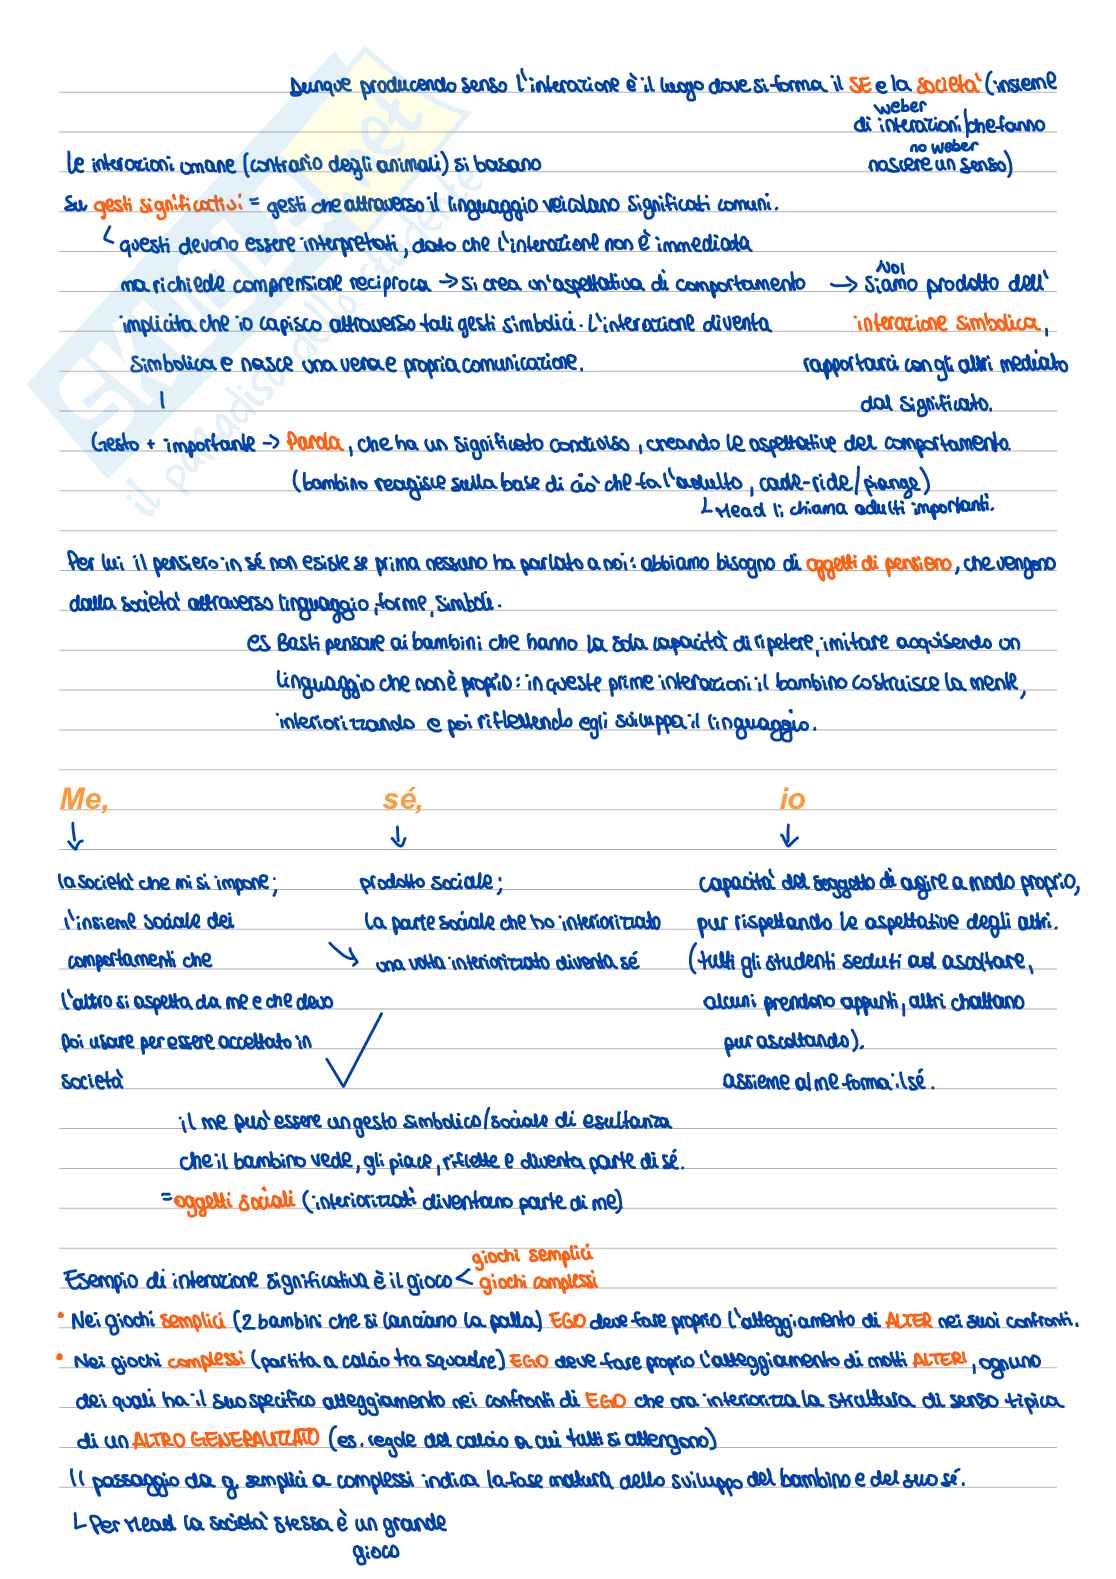 Dunque producendo senso l'interazione è il luogo dove si forma il SE e la società (insieme
weber
di interazioni/che fanno
no weber
nascere un senso)
Le interazioni umane (contrario degli animali) si basano
su gesti significativi = gesti che attraverso il linguaggio veicolano significati comuni.
questi devono essere interpretati, dato che l'interazione non è immediata
ma richiede comprensione reciproca → si crea un'aspettativa di comportamento
implicita che io capisco attraverso tali gesti simbolici. L'interazione diventa
simbolica e nasce una vera e propria comunicazione.
→ Noi
siamo prodotto dell'
interazione simbolica,
rapportarci con gli altri mediato
dal significato.
Gesto + importante → Parola, che ha un significato condiviso, creando le aspettative del comportamento.
(bambino reagisce sulla base di ciò che fa l'adulto, cade-ride/piange)
Mead li chiama adulti importanti.
Per lui il pensiero in sé non esiste se prima nessuno ha parlato a noi: abbiamo bisogno di oggetti di pensiero, che vengono
dalla società attraverso linguaggio, forme, simboli.
es Basti pensare ai bambini che hanno la sola capacità di ripetere, imitare acquisendo un
linguaggio che non è proprio: in queste prime interazioni il bambino costruisce la mente,
interiorizzando e poi riflettendo egli sviluppa il linguaggio.
Me, sé, io
la società che mi si impone;
l'insieme sociale dei
comportamenti che
l'altro si aspetta da me e che devo
poi usare per essere accettato in
società
prodotto sociale;
la parte sociale che ho interiorizzato
una volta interiorizzato diventa sé
capacità del soggetto di agire a modo proprio,
pur rispettando le aspettative degli altri.
(tutti gli studenti seduti ad ascoltare,
alcuni prendono appunti, altri chattano
pur ascoltando).
assieme al me forma il sé.
il me può essere un gesto simbolico/sociale di esultanza
che il bambino vede, gli piace, riflette e diventa parte di sé.
= oggetti sociali (interiorizzati diventano parte di me)
giochi semplici
Esempio di interazione significativa è il gioco < giochi complessi
• Nei giochi semplici (2 bambini che si lanciano la palla) EGO deve fare proprio l'atteggiamento di ALTER nei suoi confronti.
• Nei giochi complessi (partita a calcio tra squadre) EGO deve fare proprio l'atteggiamento di molti ALTERI, ognuno
dei quali ha il suo specifico atteggiamento nei confronti di EGO che ora interiorizza la struttura di senso tipica
di un ALTRO GENERALIZZATO (es. regole del calcio a cui tutti si attengono)
Il passaggio da g. semplici a complessi indica la fase matura dello sviluppo del bambino e del suo sé.
Per Mead la società stessa è un grande
gioco